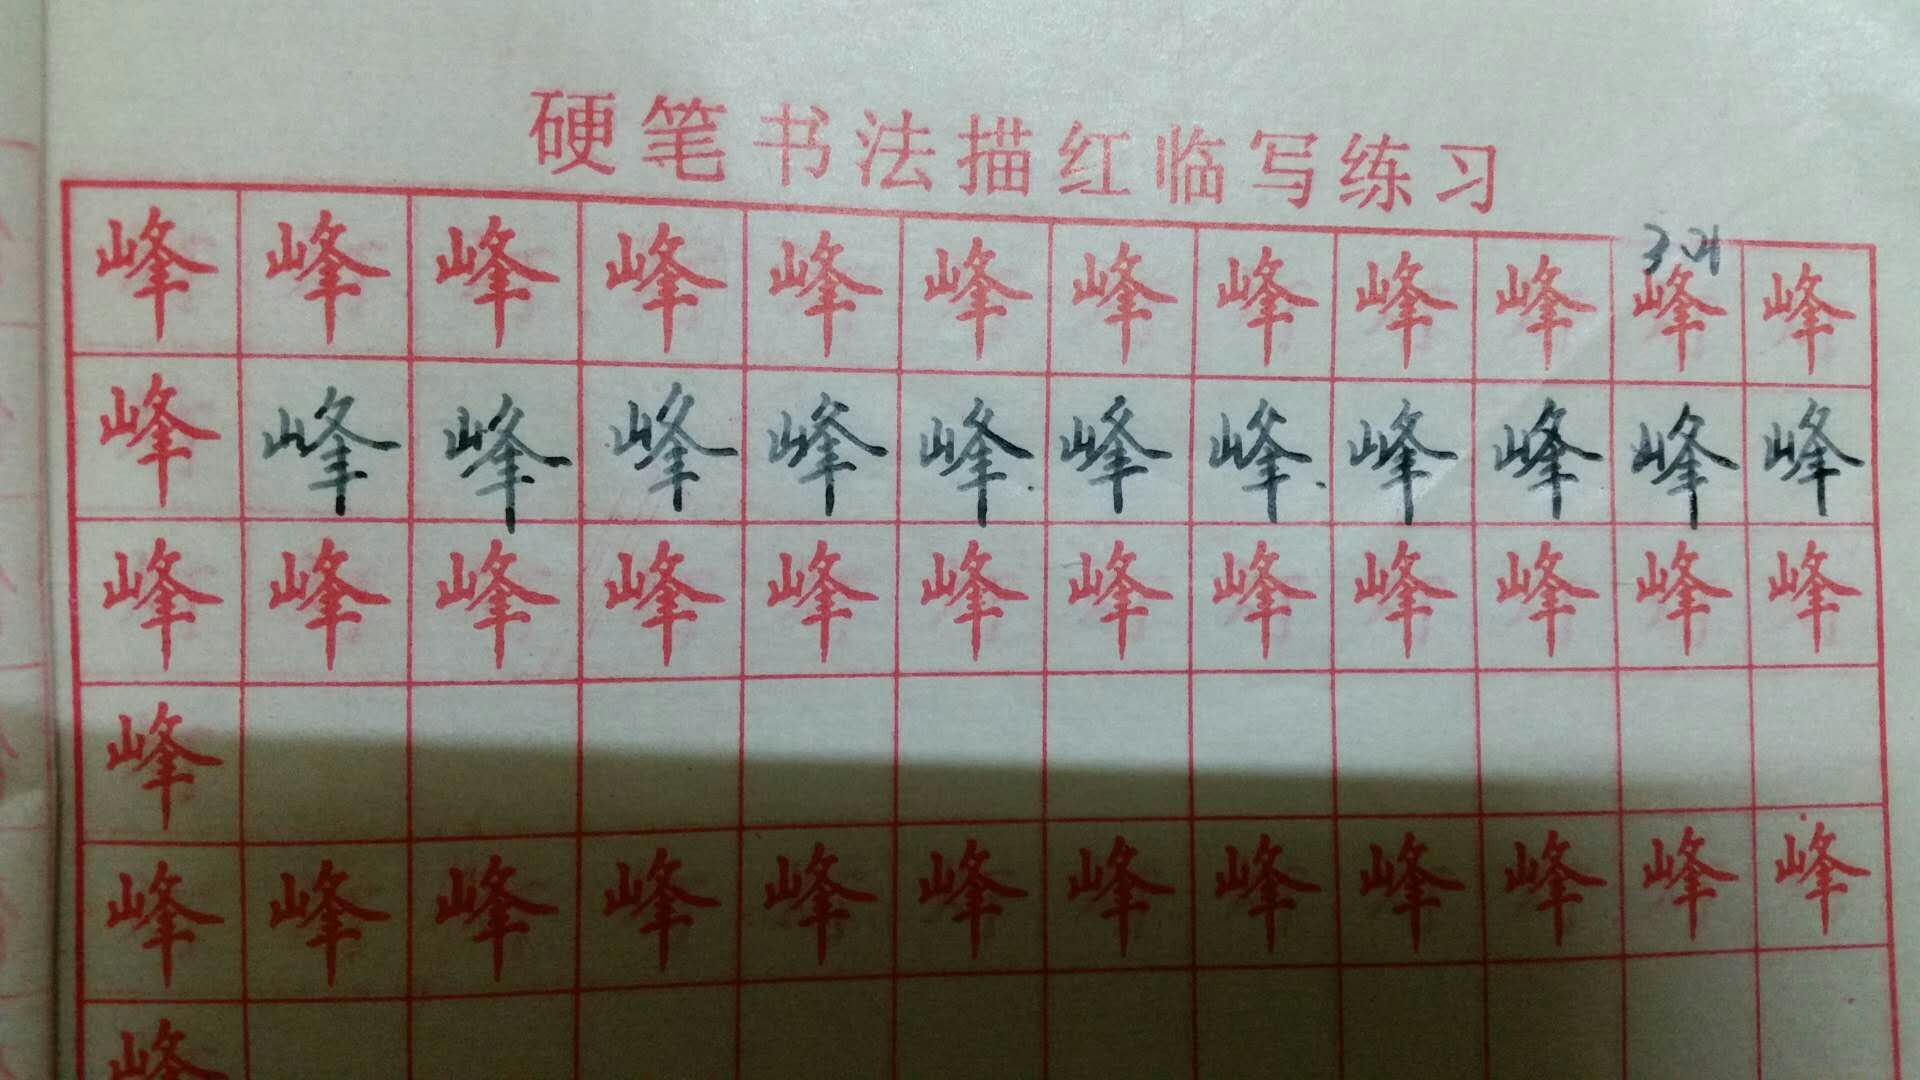 硬笔书法描红临写练习
3.21
峰 峰 峰 峰 峰 峰 峰 峰 峰 峰 峰 峰
峰 峰 峰 峰 峰 峰 峰 峰 峰 峰 峰 峰
峰 峰 峰 峰 峰 峰 峰 峰 峰 峰 峰 峰
峰
峰 峰 峰 峰 峰 峰 峰 峰 峰 峰 峰 峰
峰